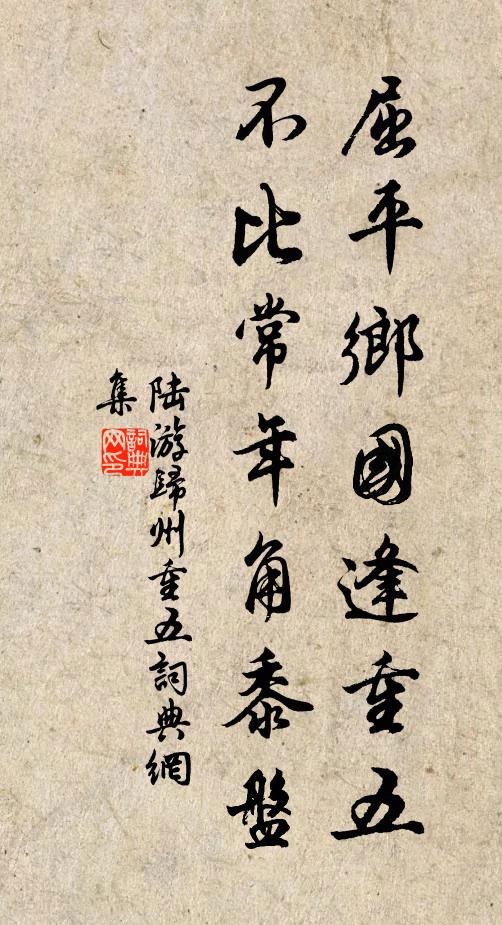 屈平鄉國逢重五
不比常年角黍盤
陸游歸州重五詞典網
集
詞典网印